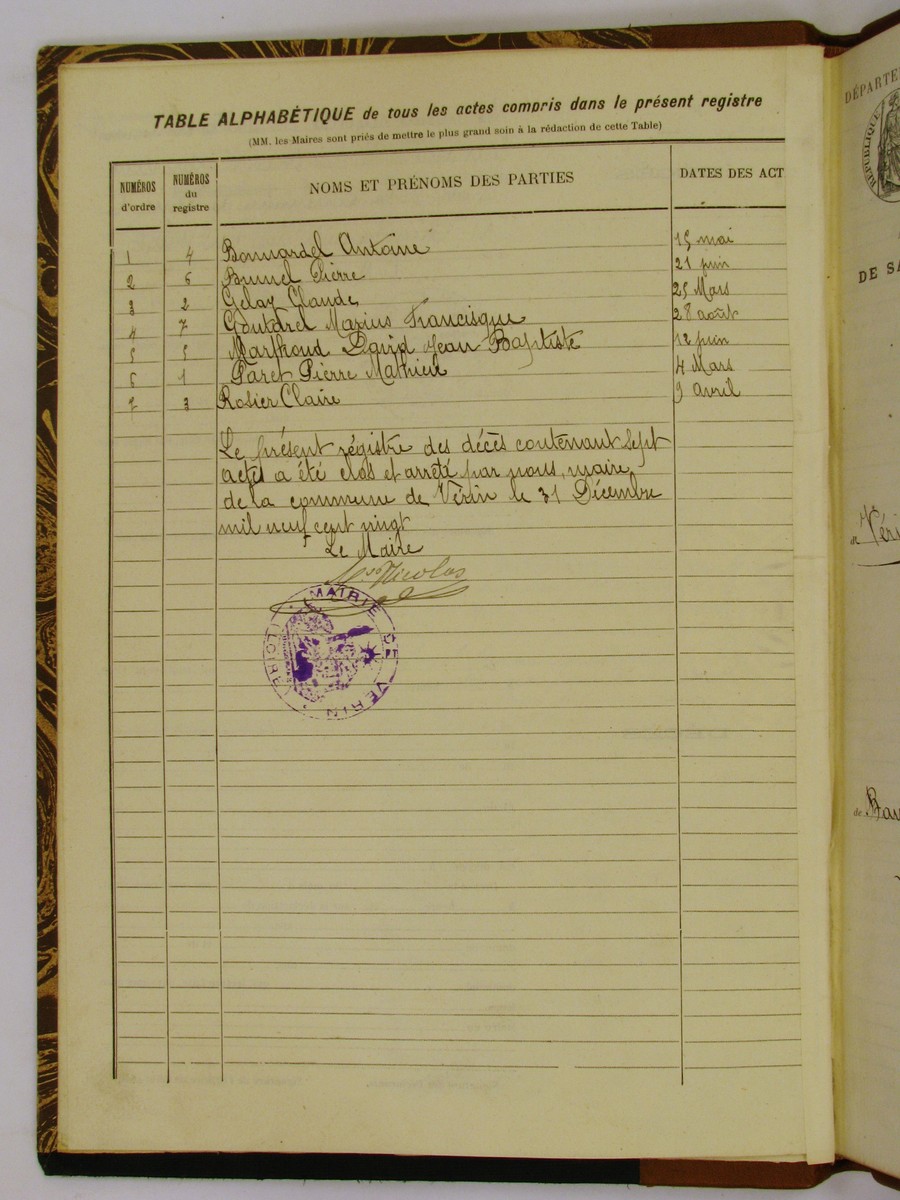 TABLE ALPHABÉTIQUE de tous les actes compris dans le présent registre
(MM. les Maires sont priés de mettre le plus grand soin à la rédaction de cette Table)
NUMÉROS d'ordre NUMÉROS du registre NOMS ET PRÉNOMS DES PARTIES DATES DES ACT
1 4 Bonnardel Antoine 15 mai
2 6 Brunel Pierre 21 juin
3 2 Gelay Claude 25 Mars
4 7 Goutarel Marius Francisque 28 août
5 5 Marthoud David Jean Baptiste 12 juin
6 1 Paret Pierre Mathieu 4 Mars
7 3 Rosier Claire 9 avril
Le présent régistre des décès contenant Sept
actes a été clos et arrêté par nous, maire
de la commune de Vérin le 31 Décembre
mil neuf cent vingt
Le Maire
Nicolas
MAIRIE DE VERIN (LOIRE)
DÉPARTE
RÉPUBLIQUE
DE SA
Véri
de